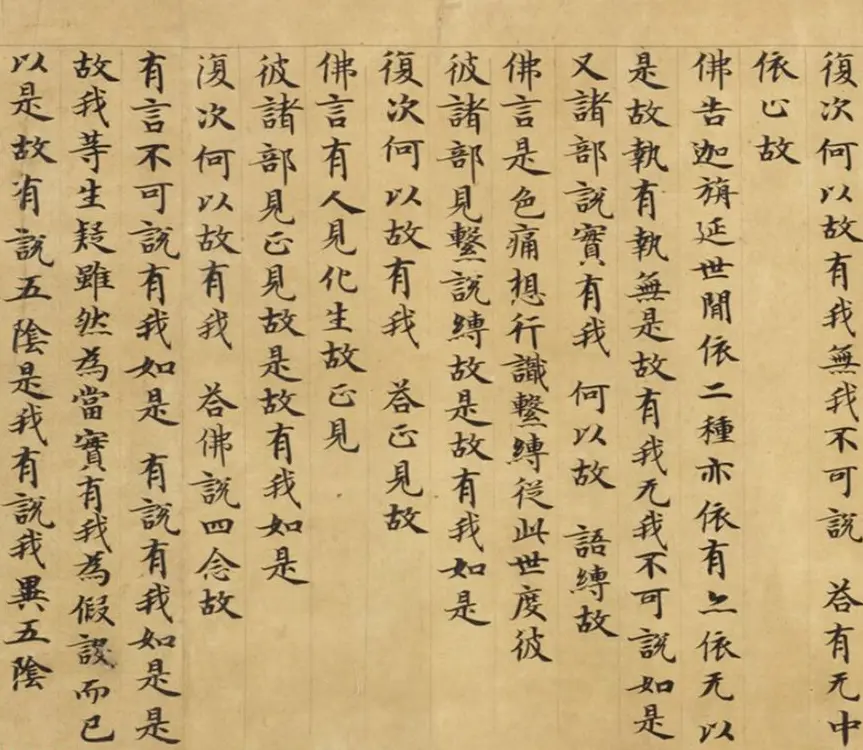 復次何以故有我無我不可說　答有无中
依心故
佛告迦旃延世間依二種亦依有亦依无以
是故執有執無是故有我无我不可說如是
又諸部說實有我　何以故　語縛故
佛言是色痛想行識繫縛從此世度彼
彼諸部見繫說縛故是故有我如是
復次何以故有我　答正見故
佛言有人見化生故正見
彼諸部見正見故是故有我如是
復次何以故有我　答佛說四念故
有言不可說有我如是　有說有我如是是
故我等生疑雖然為當實有我為假設而已
以是故有說五陰是我有說我異五陰